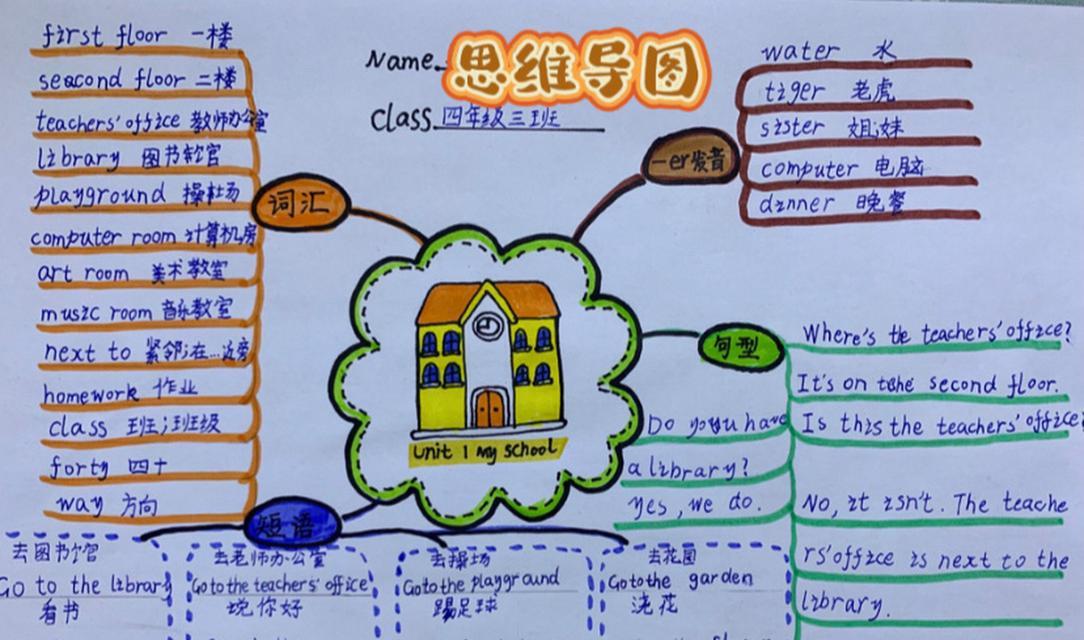 思维导图
Name
class 四年级三班
词汇
first floor 一楼
seacond floor 二楼
teachers' office 教师办公室
library 图书馆
playground 操场
computer room 计算机房
art room 美术教室
music room 音乐教室
next to 紧邻;在…近旁
homework 作业
class 班;班级
forty 四十
way 方向
-er发音
water 水
tiger 老虎
sister 姐妹
computer 电脑
dinner 晚餐
Unit 1 My school
句型
Where's the teachers' office?
It's on the second floor.
Is this the teachers' office?
No, it isn't. The teache
rs' office is next to the
library.
Do you have
a library?
yes, we do.
短语
去图书馆
Go to the library
看书
去老师办公室
Go to the teachers' office
说你好
去操场
Go to the playground
踢足球
去花园
Go to the garden
浇花